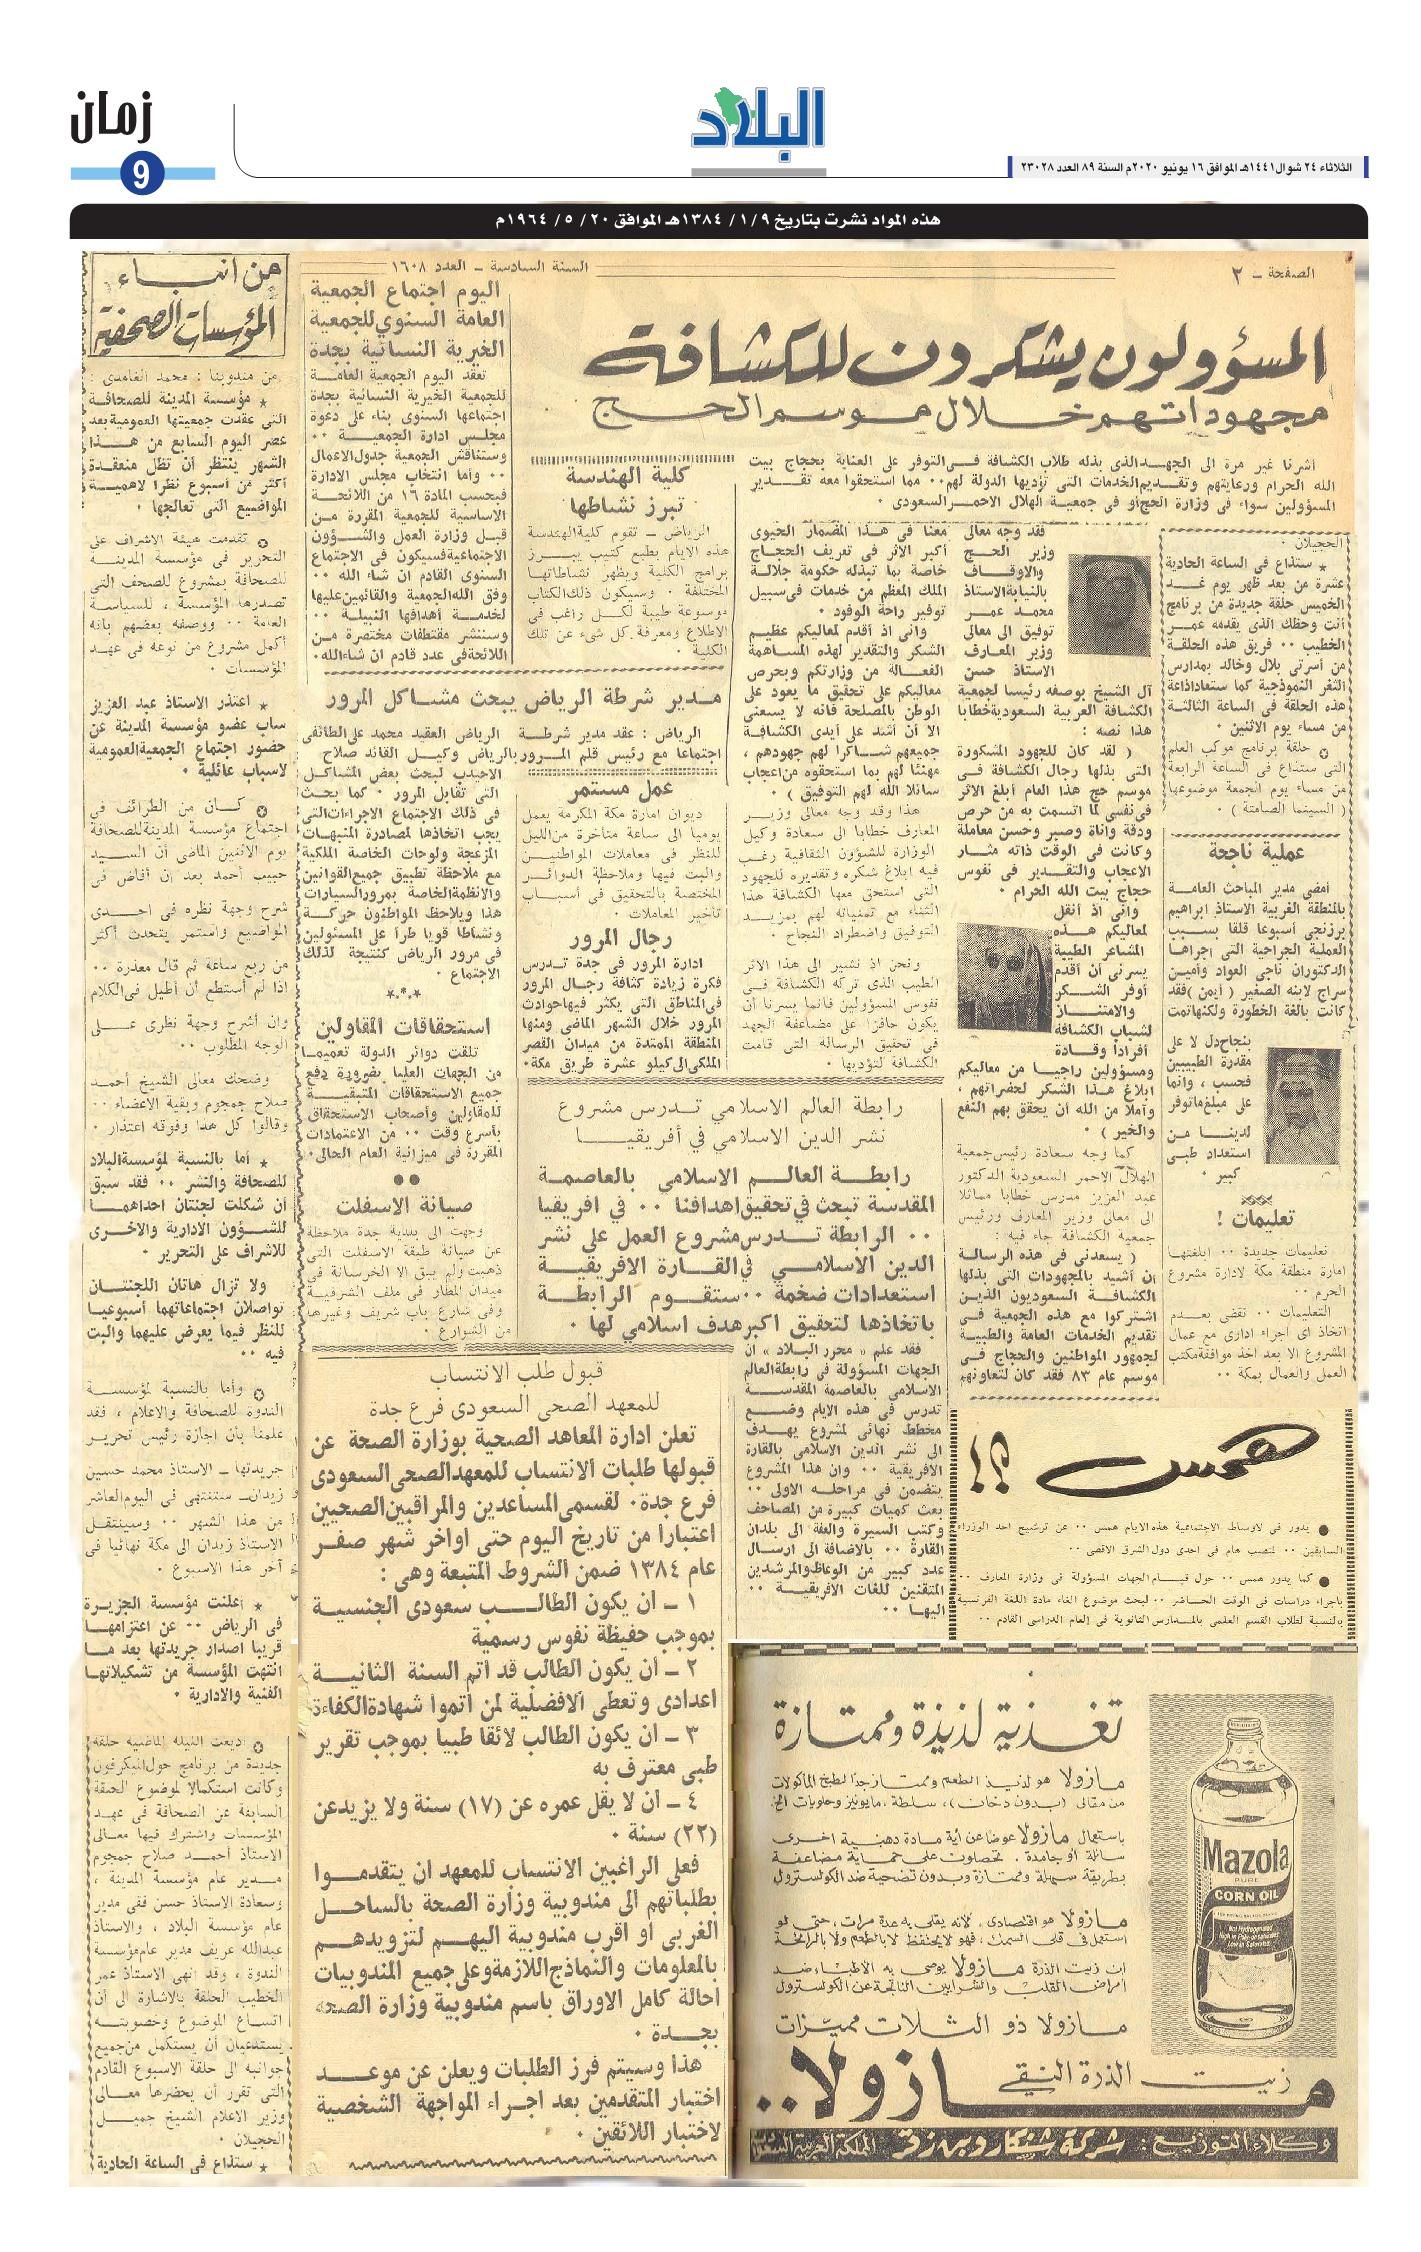 زمان
9
البلاد
الثلاثاء ٢٤ شوال ١٤٤١هـ الموافق ١٦ يونيو ٢٠٢٠م السنة ٨٩ العدد ٢٣٠٢٨
هذه المواد نشرت بتاريخ ٩/ ١/ ١٣٨٤هـ الموافق ٢٠/ ٥/ ١٩٦٤م
الصفحة - ٢
السنة السادسة - العدد ١٦٠٨
المسؤولون يشكرون للكشافة
مجهوداتهم خلال موسم الحج
أشرنا غير مرة الى الجهد الذى بذله طلاب الكشافة فى التوفر على العناية بحجاج بيت
الله الحرام ورعايتهم وتقديم الخدمات التى تؤديها الدولة لهم ٠٠ مما استحقوا معه تقدير
المسؤولين سواء فى وزارة الحج أو فى جمعية الهلال الاحمر السعودى ٠
فقد وجه معالى
وزير الحج
والاوقاف
بالنيابة الاستاذ
محمد عمر
توفيق الى معالى
وزير المعارف
الاستاذ حسن
آل الشيخ بوصفه رئيسا لجمعية
الكشافة العربية السعودية خطابا
هذا نصه :
( لقد كان للجهود المشكورة
التى بذلها رجال الكشافة فى
موسم حج هذا العام أبلغ الاثر
فى نفسى لما اتسمت به من حرص
ودقة واناة وصبر وحسن معاملة
وكانت فى الوقت ذاته مثار
الاعجاب والتقدير فى نفوس
حجاج بيت الله الحرام ٠
وانى اذ أنقل
لمعاليكم هذه
المشاعر الطيبة
يسرنى أن أقدم
أوفر الشكر
والامتنان
لشباب الكشافة
أفرادا وقادة
ومسؤولين راجيا من معاليكم
ابلاغ هذا الشكر لحضراتهم ،
وآملا من الله أن يحقق بهم النفع
والخير ) ٠
كما وجه سعادة رئيس جمعية
الهلال الاحمر السعودية الدكتور
عبد العزيز مدرس خطابا مماثلا
الى معالى وزير المعارف ورئيس
جمعية الكشافة جاء فيه :
( يسعدنى فى هذه الرسالة
ان أشيد بالمجهودات التى بذلها
الكشافة السعوديون الذين
اشتركوا مع هذه الجمعية فى
تقديم الخدمات العامة والطبية
لجمهور المواطنين والحجاج فى
موسم عام ٨٣ فقد كان لتعاونهم
معنا فى هذا المضمار الحيوى
أكبر الاثر فى تعريف الحجاج
خاصة بما تبذله حكومة جلالة
الملك المعظم من خدمات فى سبيل
توفير راحة الوفود ٠
وانى اذ أقدم لمعاليكم عظيم
الشكر والتقدير لهذه المساهمة
الفعالة من وزارتكم وبحرص
معاليكم على تحقيق ما يعود على
الوطن بالمصلحة فانه لا يسعنى
الا أن أشد على أيدى الكشافة
جميعهم شاكرا لهم جهودهم ،
مهنئا لهم بما استحقوه من اعجاب
سائلا الله لهم التوفيق ) ٠
هذا وقد وجه معالى وزير
المعارف خطابا الى سعادة وكيل
الوزارة للشؤون الثقافية رغب
فيه ابلاغ شكره وتقديره للجهود
التى استحق معها الكشافة هذا
الثناء مع تمنياته لهم بمزيد
التوفيق واضطراد النجاح ٠
ونحن اذ نشير الى هذا الاثر
الطيب الذى تركه الكشافة فى
نفوس المسؤولين فانما يسرنا أن
يكون حافزا على مضاعفة الجهد
فى تحقيق الرسالة التى قامت
الكشافة لتؤديها ٠
الحجيلان ٠
★ ستذاع فى الساعة الحادية
عشرة من بعد ظهر يوم غد
الخميس حلقة جديدة من برنامج
أنت وحظك الذى يقدمه عمر
الخطيب ٠٠ فريق هذه الحلقة
من أسرتى بلال وخالد بمدارس
الثغر النموذجية كما ستعاد اذاعة
هذه الحلقة فى الساعة الثالثة
من مساء يوم الاثنين ٠
حلقة برنامج موكب العلم
التى ستذاع فى الساعة الرابعة
من مساء يوم الجمعة موضوعها
( السينما الصامتة ) ٠
عملية ناجحة
أمضى مدير المباحث العامة
بالمنطقة الغربية الاستاذ ابراهيم
برزنجى أسبوعا قلقا بسبب
العملية الجراحية التى اجراها
الدكتوران ناجى العواد وأمين
سراج لابنه الصغير ( أيمن ) فقد
كانت بالغة الخطورة ولكنها تمت
بنجاح دل لا على
مقدرة الطبيبين
فحسب ، وانما
على مبلغ ما توفر
لدينا من
استعداد طبى
كبير ٠
تعليمات !
تعليمات جديدة ٠٠ ابلغتها
امارة منطقة مكة لادارة مشروع
الحرم ٠٠
التعليمات ٠٠ تقضى بعدم
اتخاذ اى اجراء ادارى مع عمال
المشروع الا بعد اخذ موافقة مكتب
العمل والعمال بمكة ٠٠
همس ؟!
يدور فى الاوساط الاجتماعية هذه الايام همس ٠٠ عن ترشيح احد الوزراء
السابقين ٠٠ لمنصب هام فى احدى دول الشرق الاقصى ٠٠
كما يدور همس ٠٠ حول قيام الجهات المسؤولة فى وزارة المعارف ٠٠
باجراء دراسات فى الوقت الحاضر ٠٠ لبحث موضوع الغاء مادة اللغة الفرنسية
بالنسبة لطلاب القسم العلمى بالمدارس الثانوية فى العام الدراسى القادم ٠٠
كلية الهندسة
تبرز نشاطها
الرياض - تقوم كلية الهندسة
هذه الايام بطبع كتيب يبرز
برامج الكلية ويظهر نشاطاتها
المختلفة ٠ وسيكون ذلك الكتاب
موسوعة طيبة لكل راغب فى
الاطلاع ومعرفة كل شىء عن تلك
الكلية ٠
اليوم اجتماع الجمعية
العامة السنوي للجمعية
الخيرية النسائية بجدة
تعقد اليوم الجمعية العامة
للجمعية الخيرية النسائية بجدة
اجتماعها السنوى بناء على دعوة
مجلس ادارة الجمعية ٠٠
وستناقش الجمعية جدول الاعمال
٠٠ وأما انتخاب مجلس الادارة
فبحسب المادة ١٦ من اللائحة
الاساسية للجمعية المقررة من
قبل وزارة العمل والشؤون
الاجتماعية فسيكون فى الاجتماع
السنوى القادم ان شاء الله ٠٠
وفق الله الجمعية والقائمين عليها
لخدمة أهدافها النبيلة ٠٠
وسننشر مقتطفات مختصرة من
اللائحة فى عدد قادم ان شاء الله.
مدير شرطة الرياض يبحث مشاكل المرور
الرياض : عقد مدير شرطة الرياض العقيد محمد على الطائفى
اجتماعا مع رئيس قلم المرور بالرياض وكيل القائد صلاح
الاحيدب لبحث بعض المشاكل
التى تقابل المرور ٠ كما بحث
فى ذلك الاجتماع الاجراءات التى
يجب اتخاذها لمصادرة المنبهات
المزعجة ولوحات الخاصة الملكية
مع ملاحظة تطبيق جميع القوانين
والانظمة الخاصة بمرور السيارات
هذا ويلاحظ المواطنون حركة
ونشاطا قويا طرأ على المسئولين
فى مرور الرياض كنتيجة لذلك
الاجتماع ٠
*.*.*
استحقاقات المقاولين
تلقت دوائر الدولة تعميما
من الجهات العليا بضرورة دفع
جميع الاستحقاقات المتبقية
للمقاولين وأصحاب الاستحقاق
بأسرع وقت ٠٠ من الاعتمادات
المقررة فى ميزانية العام الحالى.
صيانة الاسفلت
وجهت الى بلدية جدة ملاحظة
عن صيانة طبقة الاسفلت التى
ذهبت ولم يبق الا الخرسانة فى
ميدان المطار فى ملف الشرفية
وفى شارع باب شريف وغيرها
من الشوارع ٠
عمل مستمر
ديوان امارة مكة المكرمة يعمل
يوميا الى ساعة متأخرة من الليل
للنظر فى معاملات المواطنين
والبت فيها وملاحظة الدوائر
المختصة بالتحقيق فى أسباب
تأخير المعاملات ٠
رجال المرور
ادارة المرور فى جدة تدرس
فكرة زيادة كثافة رجال المرور
فى المناطق التى يكثر فيها حوادث
المرور خلال الشهر الماضى ومنها
المنطقة الممتدة من ميدان القصر
الملكى الى كيلو عشرة طريق مكة٠
رابطة العالم الاسلامي تدرس مشروع
نشر الدين الاسلامي في أفريقيا
رابطة العالم الاسلامى بالعاصمة
المقدسة تبحث في تحقيق اهدافنا ٠٠ في افريقيا
٠٠ الرابطة تدرس مشروع العمل على نشر
الدين الاسلامي في القارة الافريقية
استعدادات ضخمة ٠٠ ستقوم الرابطة
باتخاذها لتحقيق اكبر هدف اسلامي لها ٠
فقد علم « محرر البلاد » ان
الجهات المسؤولة فى رابطة العالم
الاسلامى بالعاصمة المقدسة
تدرس فى هذه الايام وضع
مخطط نهائى لمشروع يهدف
الى نشر الدين الاسلامى بالقارة
الافريقية ٠٠ وان هذا المشروع
يتضمن فى مراحله الاولى ٠٠
بعث كميات كبيرة من المصاحف
وكتب السيرة والفقه الى بلدان
القارة ٠٠ بالاضافة الى ارسال
عدد كبير من الوعاظ والمرشدين
المتقنين للغات الافريقية ٠٠
اليها ٠٠
قبول طلب الانتساب
للمعهد الصحى السعودى فرع جدة
تعلن ادارة المعاهد الصحية بوزارة الصحة عن
قبولها طلبات الانتساب للمعهد الصحى السعودى
فرع جدة٠ لقسمى المساعدين والمراقبين الصحيين
اعتبارا من تاريخ اليوم حتى اواخر شهر صفر
عام ١٣٨٤ ضمن الشروط المتبعة وهى :
١ - ان يكون الطالب سعودى الجنسية
بموجب حفيظة نفوس رسمية
٢ - ان يكون الطالب قد اتم السنة الثانية
اعدادى وتعطى الافضلية لمن اتموا شهادة الكفاءة
٣ - ان يكون الطالب لائقا طبيا بموجب تقرير
طبى معترف به
٤ - ان لا يقل عمره عن (١٧) سنة ولا يزيد عن
(٢٢) سنة ٠
فعلى الراغبين الانتساب للمعهد ان يتقدموا
بطلباتهم الى مندوبية وزارة الصحة بالساحل
الغربى او اقرب مندوبية اليهم لتزويدهم
بالمعلومات والنماذج اللازمة وعلى جميع المندوبيات
احالة كامل الاوراق باسم مندوبية وزارة الصحة
بجدة ٠
هذا وسيتم فرز الطلبات ويعلن عن موعد
اختبار المتقدمين بعد اجراء المواجهة الشخصية
لاختبار اللائقين ٠
من انباء
المؤسسات الصحفية
من مندوبنا : محمد الغامدى :
★ مؤسسة المدينة للصحافة
التى عقدت جمعيتها العمومية بعد
عصر اليوم السابع من هذا
الشهر ينتظر أن تظل منعقدة
أكثر من أسبوع نظرا لاهمية
المواضيع التى تعالجها ٠
تقدمت هيئة الاشراف على
التحرير فى مؤسسة المدينة
للصحافة بمشروع للصحف التى
تصدرها المؤسسة ، للسياسة
العامة ٠٠ ووصفه بعضهم بانه
أكمل مشروع من نوعه فى عهد
المؤسسات ٠
★ اعتذر الاستاذ عبد العزيز
ساب عضو مؤسسة المدينة عن
حضور اجتماع الجمعية العمومية
لاسباب عائلية ٠
كان من الطرائف فى
اجتماع مؤسسة المدينة للصحافة
يوم الاثنين الماضى أن السيد
حبيب أحمد بعد إن أفاض فى
شرح وجهة نظره فى احدى
المواضيع واستمر يتحدث أكثر
من ربع ساعة ثم قال معذرة ٠٠
اذا لم أستطع أن أطيل فى الكلام
وان أشرح وجهة نظرى على
الوجه المطلوب ٠٠
وضحك معالى الشيخ أحمد
صلاح جمجوم وبقية الاعضاء ٠٠
وقالوا كل هذا وفوقه اعتذار ٠
★ أما بالنسبة لمؤسسة البلاد
للصحافة والنشر ٠٠ فقد سبق
أن شكلت لجنتان احداهما
للشؤون الادارية والاخرى
للاشراف على التحرير ٠
ولا تزال هاتان اللجنتان
تواصلان اجتماعاتهما أسبوعيا
للنظر فيما يعرض عليهما والبت
فيه ٠٠
وأما بالنسبة لمؤسسة
الندوة للصحافة والاعلام ، فقد
علمنا بان اجازة رئيس تحرير
جريدتها - الاستاذ محمد حسين
زيدان - ستنتهى فى اليوم العاشر
من هذا الشهر ٠٠ وسينتقل
الاستاذ زيدان الى مكة نهائيا فى
آخر هذا الاسبوع ٠
★ أعلنت مؤسسة الجزيرة
فى الرياض ٠٠ عن اعتزامها
قريبا اصدار جريدتها بعد ما
انتهت المؤسسة من تشكيلاتها
الفنية والادارية ٠
ذيعت الليلة الماضية حلقة
جديدة من برنامج حول الميكرفون
وكانت استكمالا لموضوع الحلقة
السابقة عن الصحافة فى عهد
المؤسسات واشترك فيها معالى
الاستاذ أحمد صلاح جمجوم
مدير عام مؤسسة المدينة ،
وسعادة الاستاذ حسن قفى مدير
عام مؤسسة البلاد ، والاستاذ
عبدالله عريف مدير عام مؤسسة
الندوة ، وقد انهى الاستاذ عمر
الخطيب الحلقة بالاشارة الى أن
اتساع الموضوع وخصوبته
يستدعيان أن يستكمل من جميع
جوانبه الى حلقة الاسبوع القادم
التى تقرر أن يحضرها معالى
وزير الاعلام الشيخ جميل
الحجيلان ٠
★ ستذاع فى الساعة الحادية
تغذية لذيذة وممتازة
مازولا هو لذيذ الطعم وممتاز جدًا لطبخ المأكولات
من مقالى (بدون دخان)، سلطة، مايونيز وحلويات الخ.
باستعمال مازولا عوضا عن أية مادة دهنية اخرى
سائلة أو جامدة. تحصلون على حماية مضاعفة
بطريقة سهلة وممتازة وبدون تضحية ضد الكولسترول
مازولا هو اقتصادى، لأنه يقلى به عدة مرات، حتى لو
استعمل فى قلى السمك، فهو لا يحتفظ لا بالطعم ولا بالرائحة
ان زيت الذرة مازولا يوصى به الأطباء ضد
أمراض القلب والشرايين الناتجة عن الكولسترول
مازولا ذو الثلاث مميزات
Mazola
PURE
CORN OIL
زيت الذرة النقي
مازولا..
وكلاء التوزيع : شركة شنكار وبيزق المملكة العربية السعودية